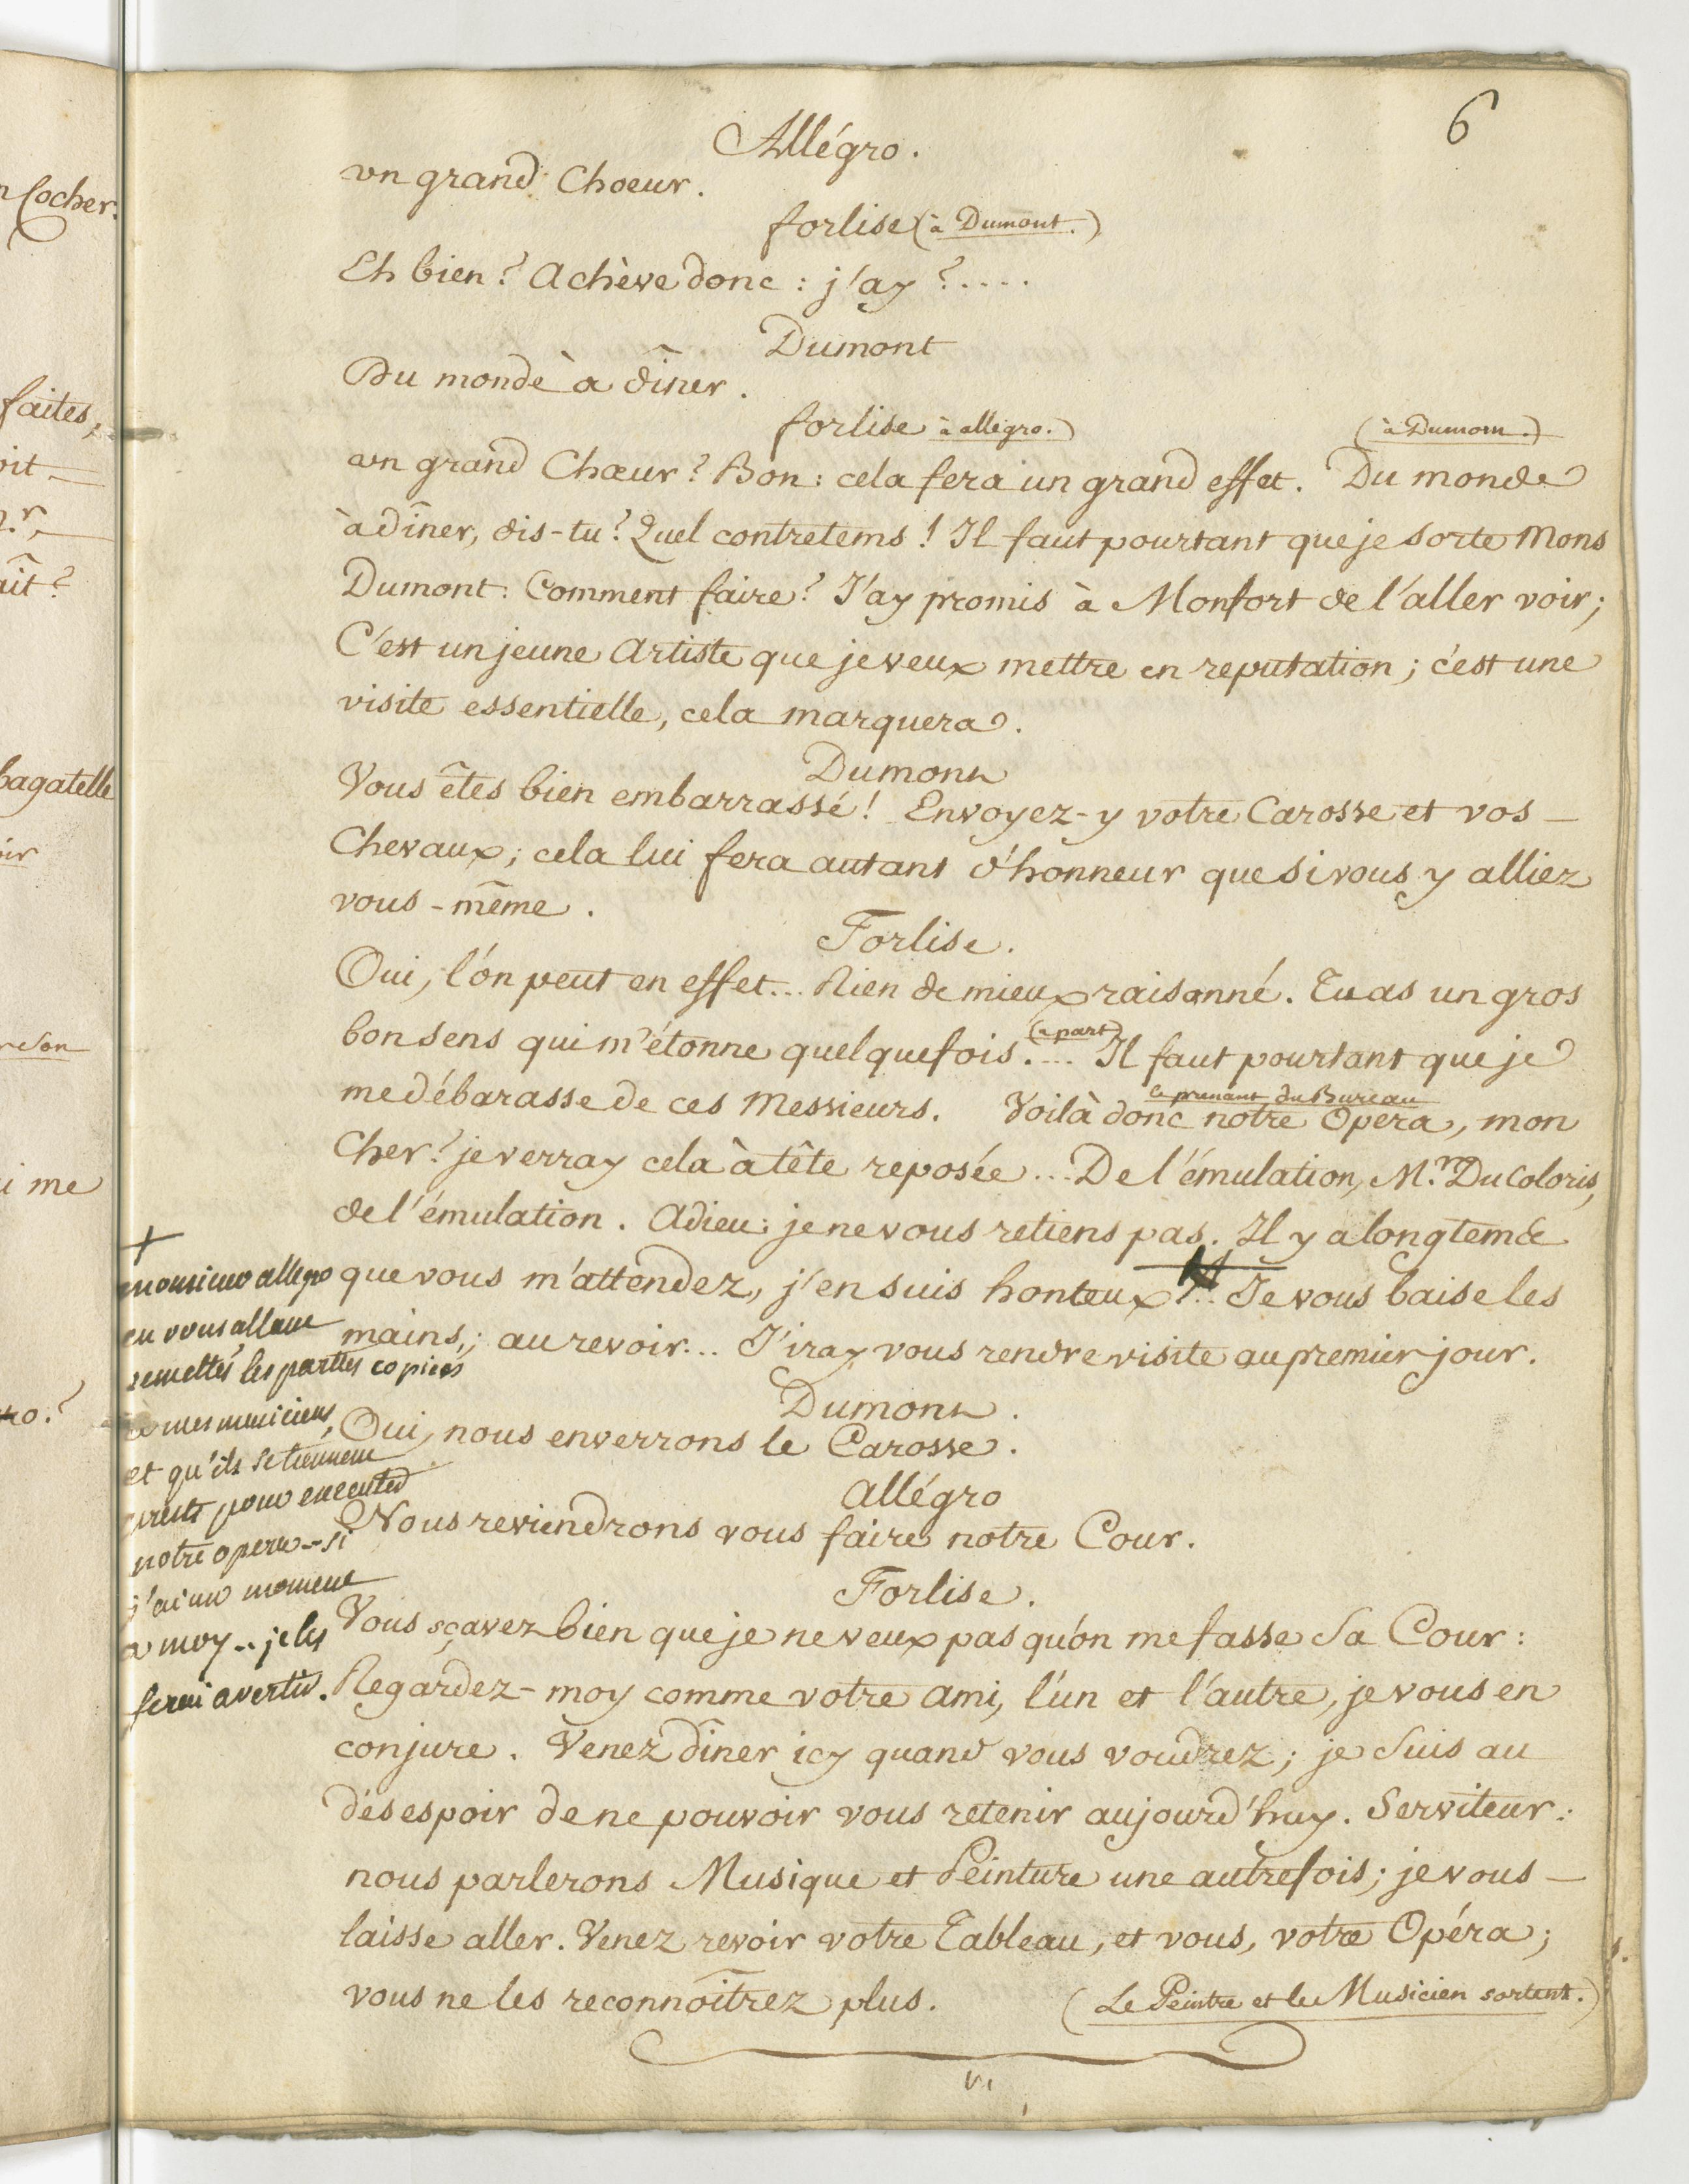 6
Allégro.
un grand Choeur.
forlise (à Dumont.)
Eh bien? Achève donc : j'ay ?.....
Dumont
Du monde à dîner.
forlise à allegro.) (à Dumont.)
un grand Chœur? Bon : cela fera un grand effet. Du monde
à dîner, dis-tu? Quel contretems! Il faut pourtant que je sorte Mons
Dumont : Comment faire? J'ay promis à Monfort de l'aller voir;
C'est un jeune Artiste que je veux mettre en reputation; c'est une
visite essentielle, cela marquera.
Dumont
Vous êtes bien embarrassé! Envoyez-y votre Carosse et vos
Chevaux; cela lui fera autant d'honneur que si vous y alliez
vous-même.
Forlise.
Oui, l'on peut en effet... Rien de mieux raisonné. Tu as un gros
bon sens qui m'étonne quelquefois.... (a part) Il faut pourtant que je
me débarasse de ces Messieurs. Voilà donc notre Opera, mon
le prenant du Bureau
Cher? je verray cela à tête reposée... De l'émulation, M.r Du Coloris,
de l'émulation. Adieu : je ne vous retiens pas. Il y a longtems
que vous m'attendez, j'en suis honteux!.. Je vous baise les
mains; au revoir... J'iray vous rendre visite au premier jour.
+
monsieur allegro
en vous allant
remettés les parties copiées
a mes musiciens,
et qu'ils se tiennent
prests pour executer
notre opera -- si
j'ai un moment
a moy .. je les
ferai avertir.
Dumont.
Oui, nous enverrons le Carosse.
Allégro
Nous reviendrons vous faire notre Cour.
Forlise.
Vous sçavez bien que je ne veux pas qu'on me fasse sa Cour :
Regardez-moy comme votre ami, l'un et l'autre, je vous en
conjure. Venez dîner icy quand vous voudrez; je suis au
désespoir de ne pouvoir vous retenir aujourd'huy. Serviteur :
nous parlerons Musique et Peinture une autrefois; je vous
laisse aller. Venez revoir votre Tableau, et vous, votre Opéra;
vous ne les reconnoîtrez plus. (Le Peintre et le Musicien sortent.)
Cocher.
faites,
oit
ait?
bagatelle
oir
son
i me
ro?